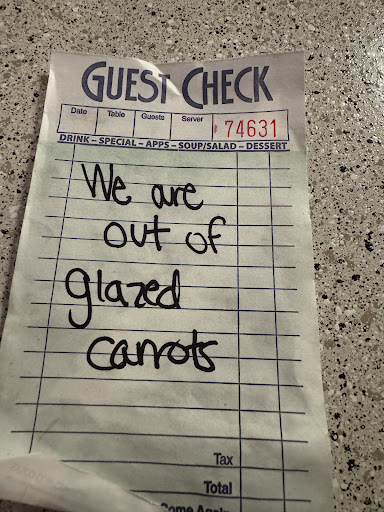 GUEST CHECK
Date Table Guests Server 74631
DRINK – SPECIAL – APPS – SOUP/SALAD – DESSERT
We are
out of
glazed
carrots
Tax
Total